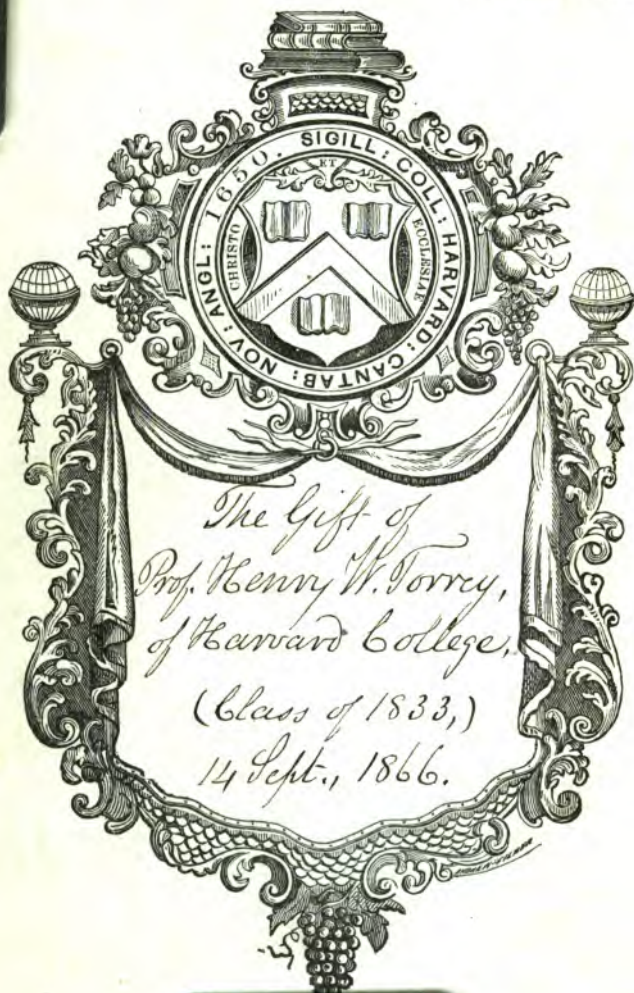 SIGILL: COLL: HARVARD: CANTAB: NOV: ANGL: 1650.
CHRISTO
ET
ECCLESIAE
The Gift of
Prof. Henry W. Torrey,
of Harvard College,
(Class of 1833,)
14 Sept., 1866.